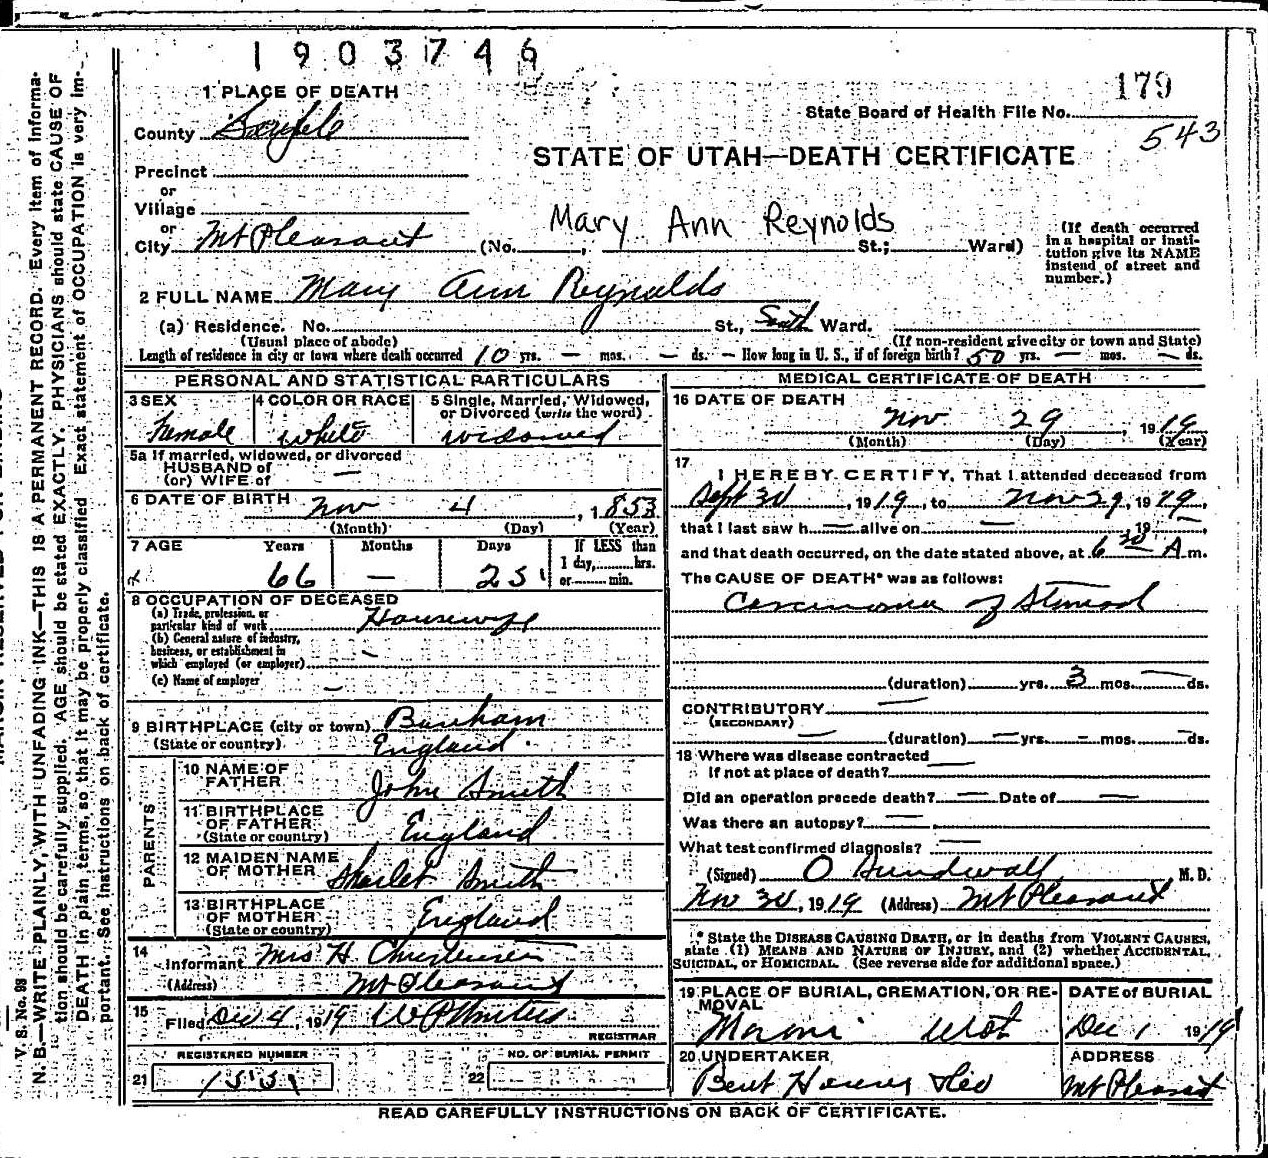 1903746
179
State Board of Health File No.
543
1 PLACE OF DEATH
County
STATE OF UTAH—DEATH CERTIFICATE
Precinct
or
Village
or
Mary Ann Reynolds
City Mt Pleasant (No. , St.; Ward)
(If death occurred in a hospital or institution give its NAME instead of street and number.)
2 FULL NAME Mary Ann Reynolds
(a) Residence. No. St., South Ward.
(Usual place of abode) (If non-resident give city or town and State)
Length of residence in city or town where death occurred 10 yrs. — mos. — ds. — How long in U. S., if of foreign birth? 50 yrs. — mos. — ds.
PERSONAL AND STATISTICAL PARTICULARS
3 SEX
Female
4 COLOR OR RACE
White
5 Single, Married, Widowed, or Divorced (write the word)
Widowed
5a If married, widowed, or divorced
HUSBAND of
(or) WIFE of —
6 DATE OF BIRTH Nov 4, 1853
(Month) (Day) (Year)
7 AGE Years Months Days If LESS than
1 day, hrs.
66 — 25 or min.
8 OCCUPATION OF DECEASED
(a) Trade, profession, or
particular kind of work Housewife
(b) General nature of industry,
business, or establishment in
which employed (or employer) —
(c) Name of employer —
9 BIRTHPLACE (city or town)
(State or country) England.
PARENTS
10 NAME OF
FATHER John Smith
11 BIRTHPLACE
OF FATHER England
(State or country)
12 MAIDEN NAME
OF MOTHER Sharlet Smith
13 BIRTHPLACE
OF MOTHER England
(State or country)
14
Informant Mrs H. Christensen
(Address) Mt Pleasant
15 Filed Dec 4, 1919
REGISTRAR
REGISTERED NUMBER
21
NO. OF BURIAL PERMIT
22
MEDICAL CERTIFICATE OF DEATH
16 DATE OF DEATH
Nov 29, 1919
(Month) (Day) (Year)
17
I HEREBY CERTIFY, That I attended deceased from
Sept 30, 1919, to Nov 29, 1919,
that I last saw h — alive on —, 19 —,
and that death occurred, on the date stated above, at 6 30 A m.
The CAUSE OF DEATH* was as follows:
Carcinoma of Stomach
(duration) yrs. 3 mos. — ds.
CONTRIBUTORY —
(SECONDARY)
— (duration) — yrs. — mos. — ds.
18 Where was disease contracted
If not at place of death? —
Did an operation precede death? — Date of —
Was there an autopsy? —
What test confirmed diagnosis? —
(Signed) O Sundwall, M. D.
Nov 30, 1919 (Address) Mt Pleasant
* State the DISEASE CAUSING DEATH, or in deaths from VIOLENT CAUSES,
state (1) MEANS AND NATURE OF INJURY, and (2) whether ACCIDENTAL,
SUICIDAL, or HOMICIDAL. (See reverse side for additional space.)
19 PLACE OF BURIAL, CREMATION, OR REMOVAL
Moroni Utah
DATE of BURIAL
Dec 1 1919
20 UNDERTAKER
Bent
ADDRESS
Mt Pleasant
READ CAREFULLY INSTRUCTIONS ON BACK OF CERTIFICATE.
V. S. No. 98
N. B.—WRITE PLAINLY, WITH UNFADING INK—THIS IS A PERMANENT RECORD. Every item of information
should be carefully supplied. AGE should be stated EXACTLY. PHYSICIANS should state CAUSE OF
DEATH in plain terms, so that it may be properly classified. Exact statement of OCCUPATION is very important.
See instructions on back of certificate.